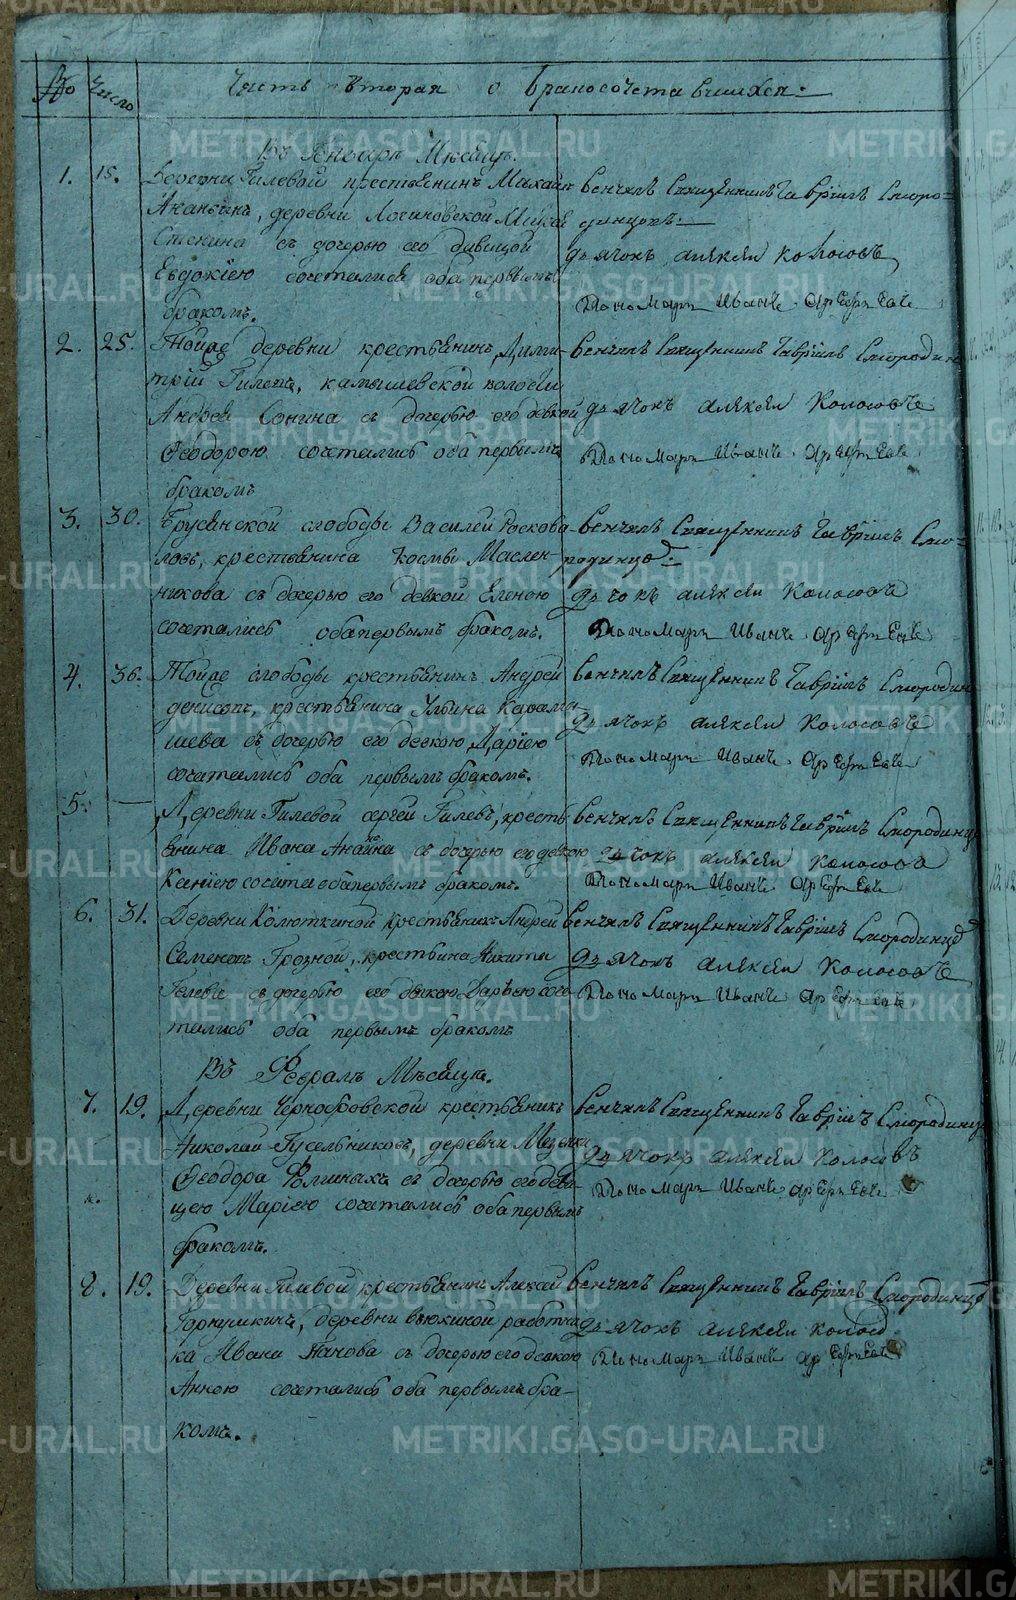 № Число Часть вторая о бракосочетавшихся:
Въ Генварѣ Мѣсяцѣ.
1. 15. Деревни Гилевой крестьянинъ Михаилъ
Ананьинъ, деревни Логиновской
Стенина съ дочерью его дѣвицой
Евдокіею сочетались оба первымъ
бракомъ.
Венчалъ Священникъ Гавріилъ Сморо-
динцовъ
дьячокъ алексѣй колосовъ
Пономарь Иванъ Арефьевъ
2. 25. Тойже деревни крестьянинъ Дими-
трій Гилевъ, камышевской волости
Андрея Сонина съ дочерью его девкой
Феодорою сочетались оба первымъ
бракомъ
Венчалъ Священникъ Гавріилъ Смородин
дьячокъ алексѣй колосовъ
Пономарь Иванъ Арефьевъ
3. 30. Брусянской слободы Василей
крестьянина Космы Маслен-
никова съ дочерью его девкой Еленою
сочетались оба первымъ бракомъ.
Венчалъ Священникъ Гавріилъ Смо-
родинцо
дьчокъ алексѣй колосовъ
Пономарь Иванъ Арефьевъ
4. 30. Тойже слободы крестьянинъ Андрей
денисовъ, крестьянина Ульяна Карама-
шева съ дочерью его девкою Даріею
сочетались оба первымъ бракомъ.
Венчалъ Священникъ Гавріилъ Смородин
дьячокъ алексѣй колосовъ
Пономарь Иванъ Арефьевъ
5. — Деревни Гилевой сергей Гилевъ, кресть-
янина Ивана Ананьина съ дочерью его девкою
Ксеніею сочета оба первымъ бракомъ.
Венчалъ Священникъ Гавріилъ Смородинц
дьчокъ алексѣй колосовъ
Пономарь Иванъ Арефьевъ
6. 31. Деревни Колюткиной крестьянинъ Андрей
Семеновъ Грозной, крестьянина Никиты
съ дочерью его девкою Дарьею соче-
тались оба первымъ бракомъ
Венчалъ Священникъ Гавріилъ Смородинцо
дьячокъ алексѣй колосовъ
Пономарь Иванъ Арефьевъ
Въ Февралѣ Мѣсяцѣ.
7. 19. Деревни Чернобровской крестьянинъ
Николай Гусельниковъ, деревни Мезенки
Феодора съ дочерью его деви-
цею Маріею сочетались оба первымъ
бракомъ.
Венчалъ Священникъ Гавріилъ Смородинц
дьячокъ алексѣй колосовъ
Пономарь Иванъ Арефьевъ
8. 19. Деревни Гилевой крестьянинъ Алексей
деревни вьюхиной работни-
ка Ивана Панова съ дочерью его девкою
Анною сочетались оба первымъ бра-
комъ.
Венчалъ Священникъ Гавріилъ Смородинцо
дьячокъ алексѣй колосо
Пономарь Иванъ Арефьевъ
METRIKI.GASO-URAL.RU